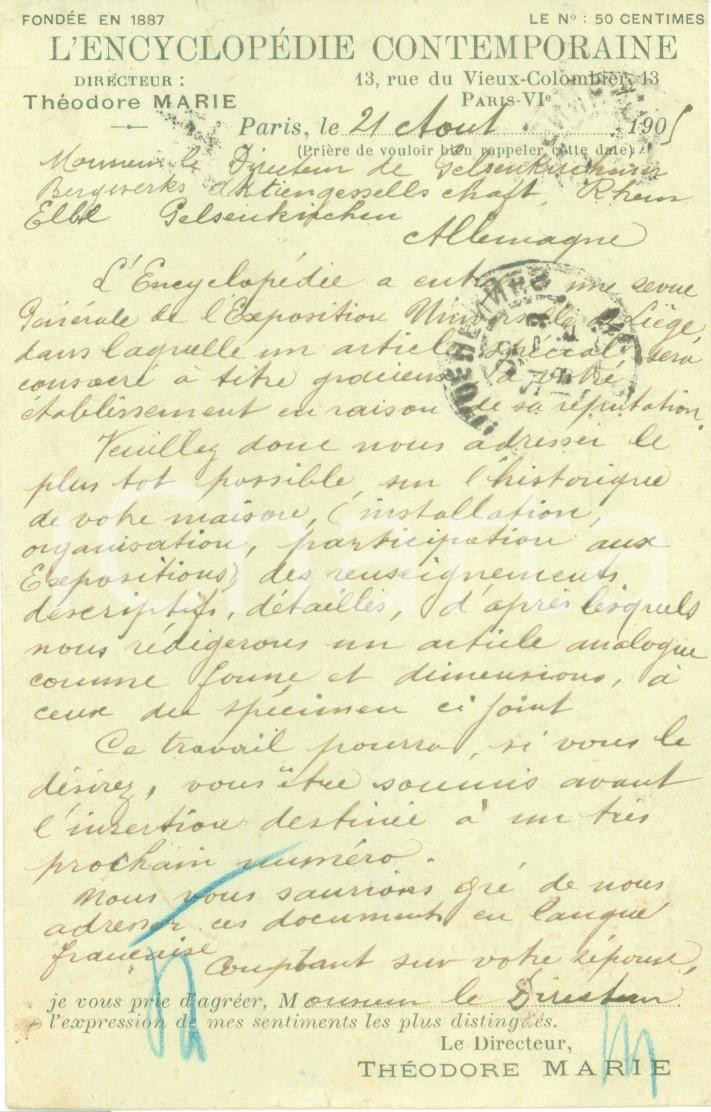 FONDÉE EN 1887
LE Nº : 50 CENTIMES
L'ENCYCLOPÉDIE CONTEMPORAINE
DIRECTEUR :
Théodore MARIE
13, rue du Vieux-Colombier, 13
PARIS-VIe
Paris, le 21 Aout 1905
(Prière de vouloir bien rappeler cette date)
Monsieur le Directeur de Gelsenkirchner
Bergwerks Aktiengessellschaft, Rhein
Elbe Gelsenkirchen
Allemagne
L'Encyclopédie a entrepris une revue
Générale de l'Exposition Universelle de Liège,
dans laquelle un article spécial sera
consacré à titre gracieux à votre
établissement en raison de sa réputation.
Veuillez donc nous adresser le
plus tot possible, sur l'historique
de votre maison, (installation,
organisation, participation aux
Expositions) des renseignements
descriptifs, détaillés, d'après lesquels
nous rédigerons un article analogue
comme forme et dimensions, à
ceux du spécimen ci joint
Ce travail pourra, si vous le
désirez, vous être soumis avant
l'insertion destinée à un très
prochain numéro.
Nous vous saurions gré de nous
adresser ces documents en langue
française
Comptant sur votre réponse,
je vous prie d'agréer, Monsieur le Directeur
l'expression de mes sentiments les plus distingués.
Le Directeur,
THÉODORE MARIE